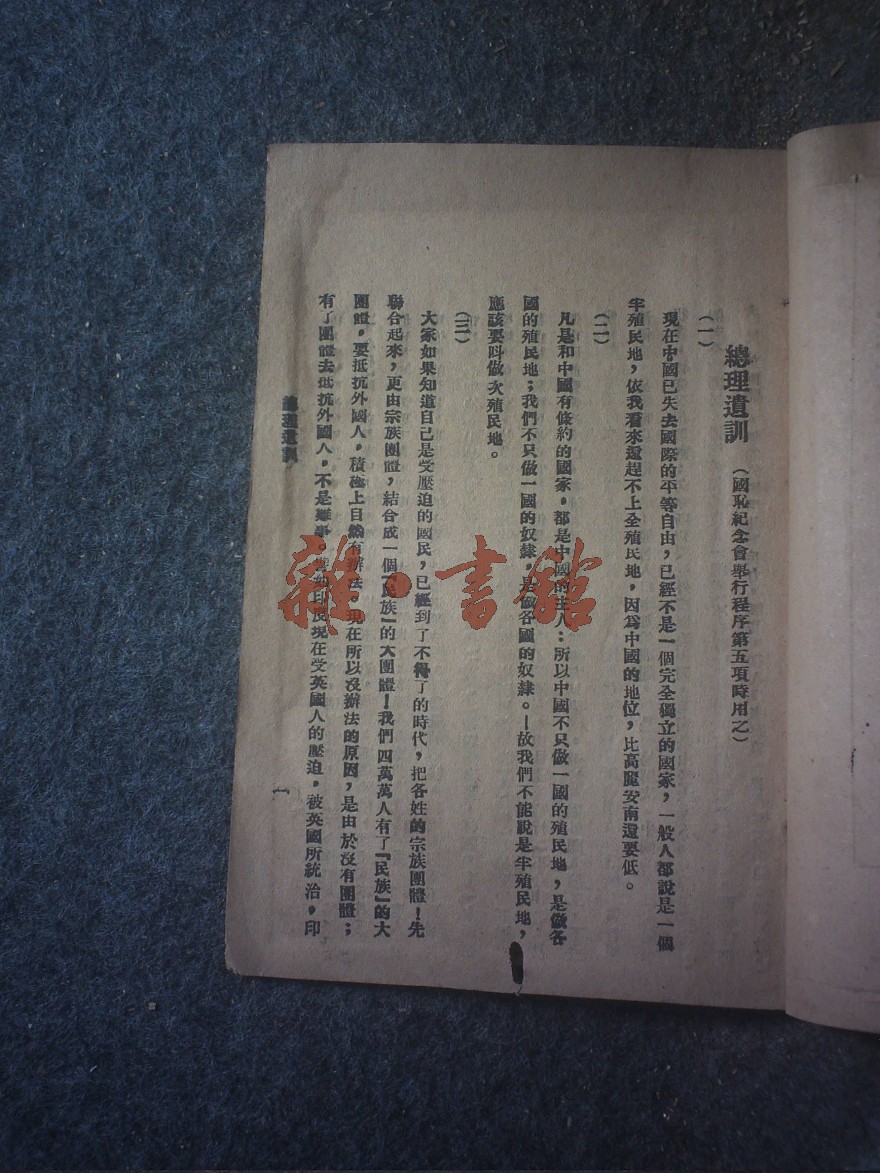 總理遺訓 (國恥紀念會舉行程序第五項時用之)
(一)
現在中國已失去國際的平等自由,已經不是一個完全獨立的國家,一般人都說是一個
半殖民地,依我看來還趕不上全殖民地,因爲中國的地位,比高麗安南還要低。
(二)
凡是和中國有條約的國家,都是中國的主人:所以中國不只做一國的殖民地,是做各
國的殖民地;我們不只做一國的奴隸,是做各國的奴隸。—故我們不能說是半殖民地,
應該要叫做次殖民地。
(三)
大家如果知道自己是受壓迫的國民,已經到了不得了的時代,把各姓的宗族團體!先
聯合起來,更由宗族團體,結合成一個『民族』的大團體!我們四萬萬人有了『民族』的大
團體,要抵抗外國人,積極上自然有辦法。現在所以沒辦法的原因,是由於沒有團體;
有了團體去抵抗外國人,不是難事。現在受英國人的壓迫,被英國所統治,印
總理遺訓
一
雜·書館